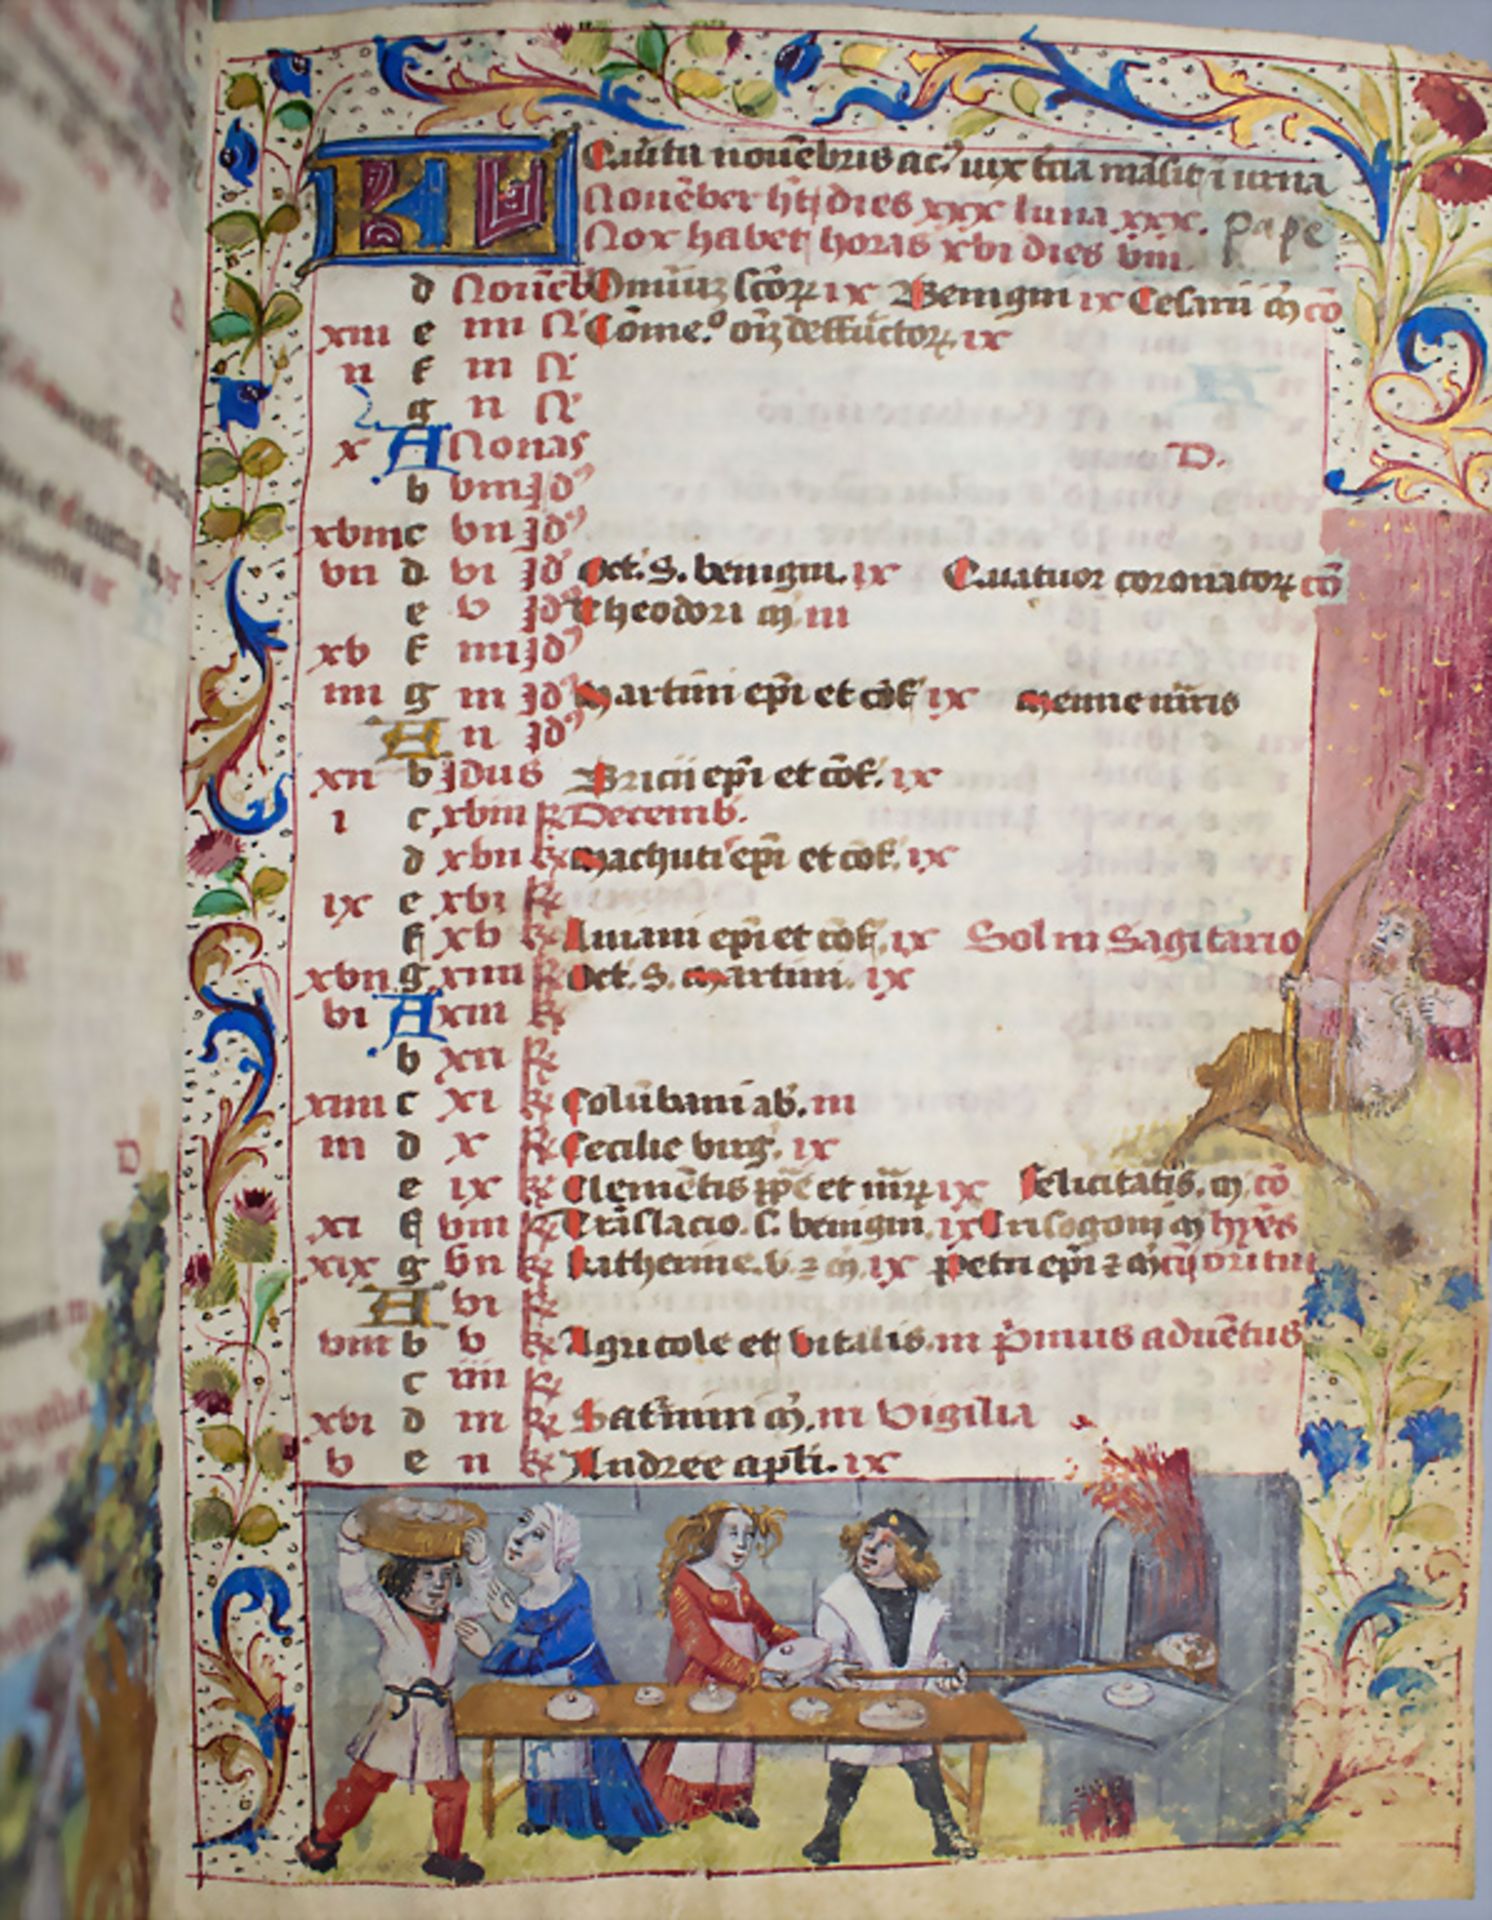 KL Quinta novēbris ac. vix tria māsit i urna
Novēber hт dies xxx luna xxx. pape
Nox habet horas xvi dies viii.
d Novēb Omniuz sctōrꝝ ix Benigni ix Cesarii m̄ cō
xiii e iiii N' Cōme. oīz deffūctorꝝ ix
ii f iii N'
g ii N'
x A Nonas D.
b viii Jd'
xviii c vii Jd'
vii d vi Jd' Oct. S. benigni. ix Quatuor coronatorꝝ cō
e v Jd' Theodori m̄. iii
xv f iiii Jd'
iiii g iii Jd' Martini ep̄i et cōf. ix Menne
A ii Jd'
xii b Jdus Bricii ep̄i et cōf. ix
i c xviii kl Decemb.
d xvii kl Machuti ep̄i et cōf. ix
ix e xvi kl
f xv kl Aniani ep̄i et cōf. ix Sol in Sagitario
xvii g xiiii kl Oct. S. Martini. ix
vi A xiii kl
b xii kl
xiiii c xi kl Colūbani ab. iii
iii d x kl Cecilie virg. ix
e ix kl Clemētis pp̄e et m̄rꝝ ix Felicitatis. m̄. cō
xi f viii kl Trāslacio. S. benigni. ix Crisogoni m̄
xix g vii kl Katherine. v. ⁊ m̄. ix Petri ep̄i ⁊ m̄
A vi kl
viii b v kl Agricole et vitalis. iii P̄mus advētus
c iiii kl
xvi d iii kl Sat̄nini m̄. iii Vigilia
v e ii kl Andree apl̄i. ix